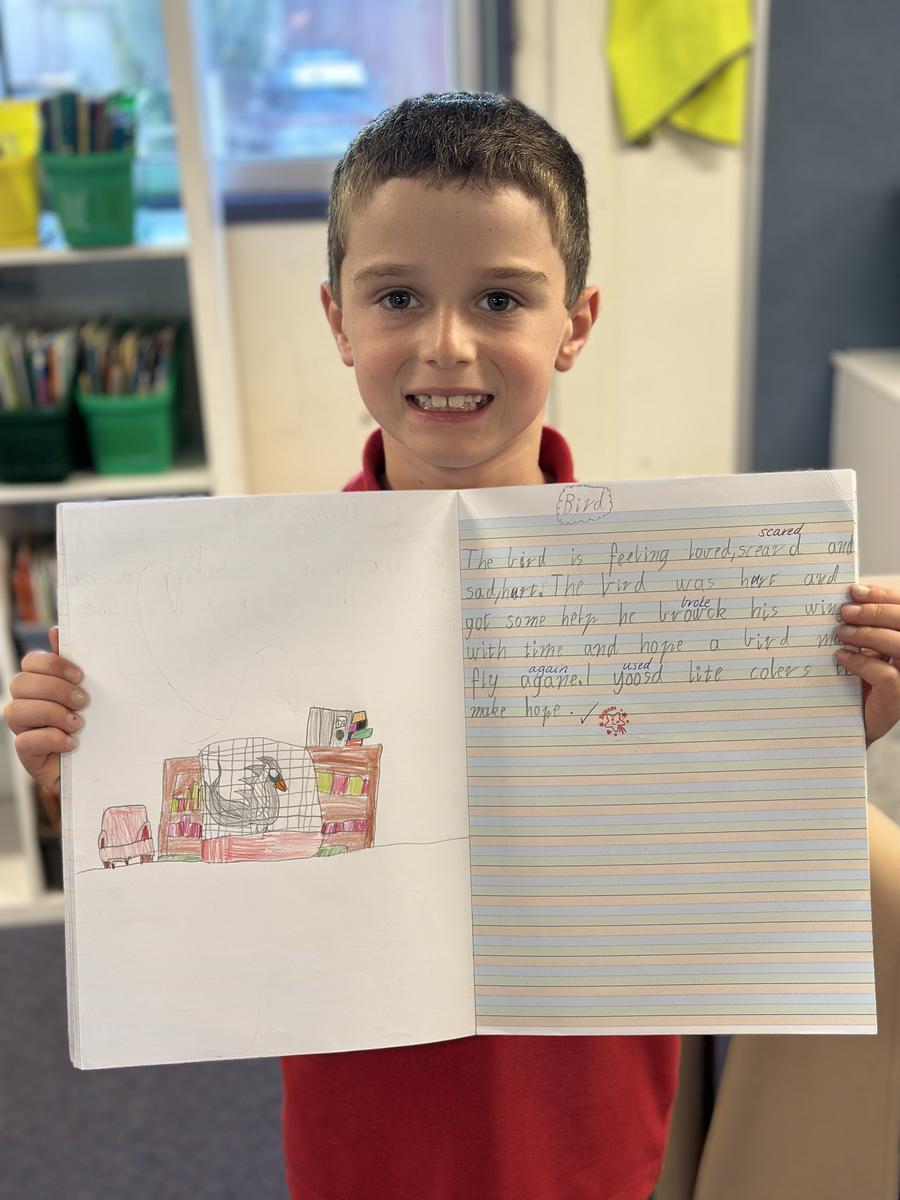 Bird
scared
The bird is feeling loved,sceard and
sad,hurt. The bird was hurt and
broke
got some help he browck his win
with time and hope a bird
again used
fly agane.I yoosd lite colers
make hope.